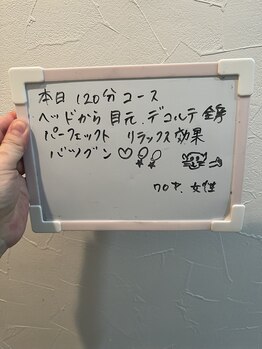 本日 120分 コース
ヘッドから 目元.デコルテ 全身
パーフェクト リラックス効果
バツグン♡
40代. 女性